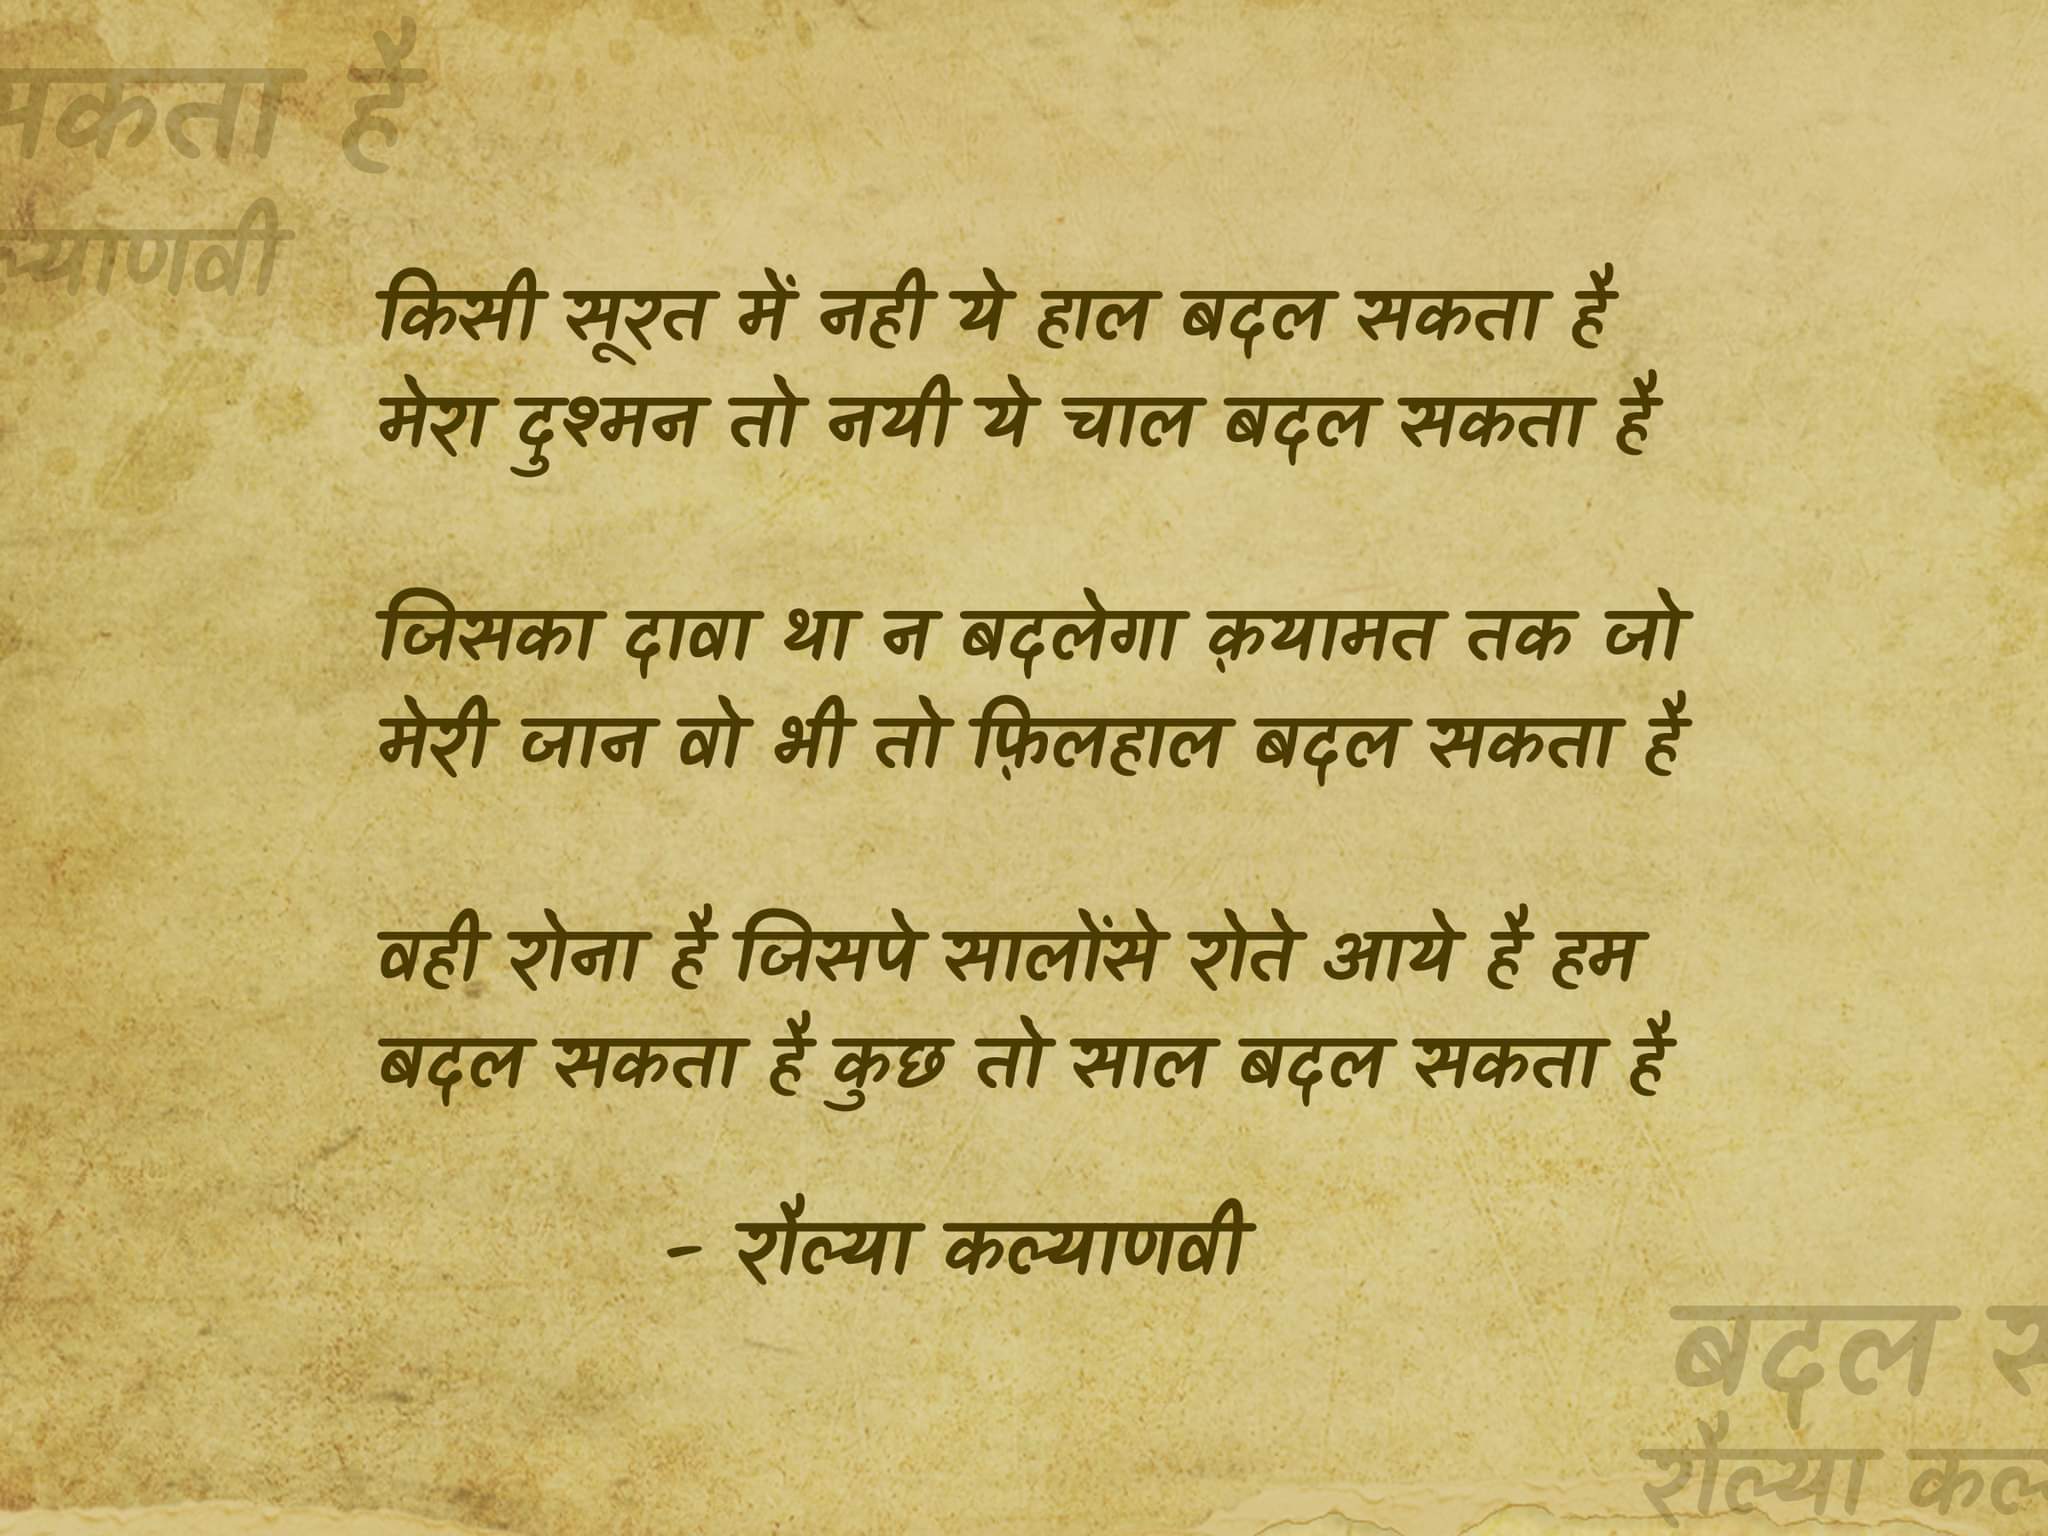 सकता है
किसी सूरत में नही ये हाल बदल सकता है
मेरा दुश्मन तो नयी ये चाल बदल सकता है
जिसका दावा था न बदलेगा क़यामत तक जो
मेरी जान वो भी तो फ़िलहाल बदल सकता है
वही रोना है जिसपे सालोंसे रोते आये है हम
बदल सकता है कुछ तो साल बदल सकता है
- रौल्या कल्याणवी
बदल
रौल्या